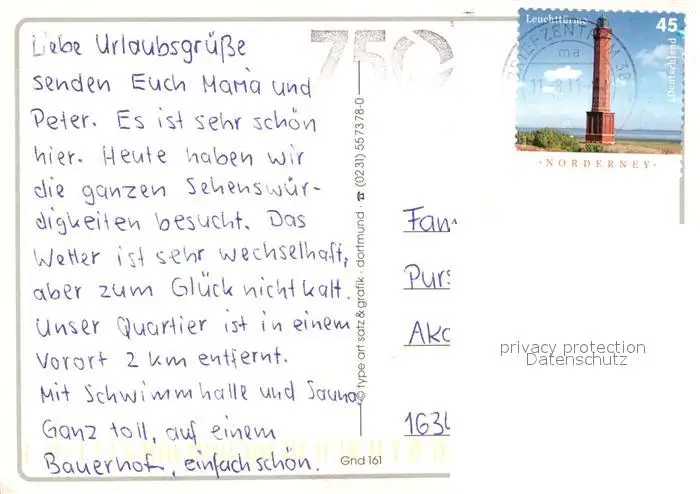 Liebe Urlaubsgrüße
senden Euch Maria und
Peter. Es ist sehr schön
hier. Heute haben wir
die ganzen Sehenswür-
digkeiten besucht. Das
Wetter ist sehr wechselhaft,
aber zum Glück nicht kalt.
Unser Quartier ist in einem
Vorort 2 km entfernt.
Mit Schwimmhalle und Sauna.
Ganz toll, auf einem
Bauerhof, einfach schön.
© type art satz & grafik · dortmund · ☎ (0231) 557378-0
Gnd 161
750
Leuchttürme 45
Deutschland
BRIEFZENTRUM 38
ma
·NORDERNEY·
Fam
Purs
Aka
privacy protection
Datenschutz